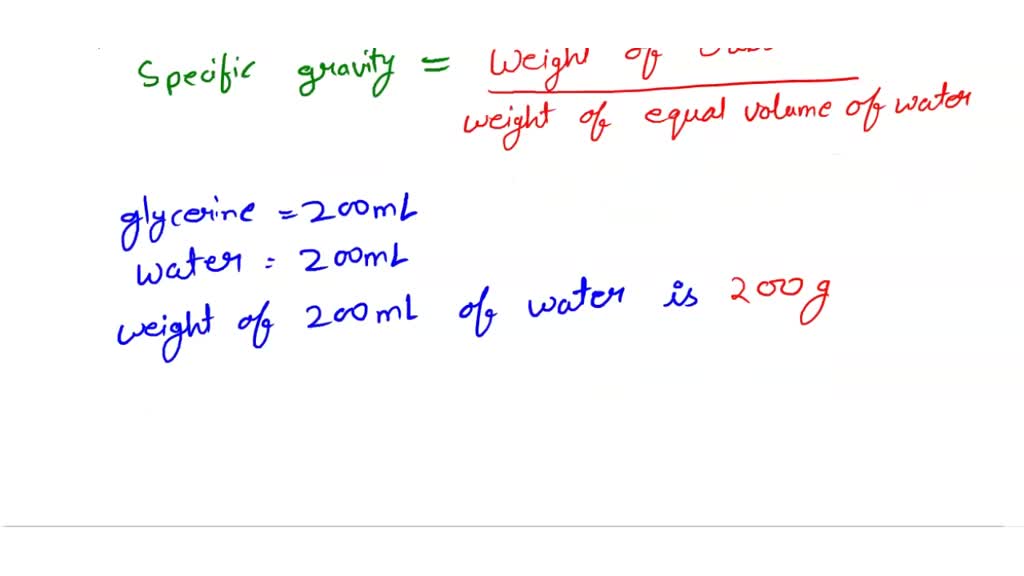 Specific gravity = Weight of
weight of equal volume of water
glycerine = 200mL
water = 200mL
weight of 200mL of water is 200g